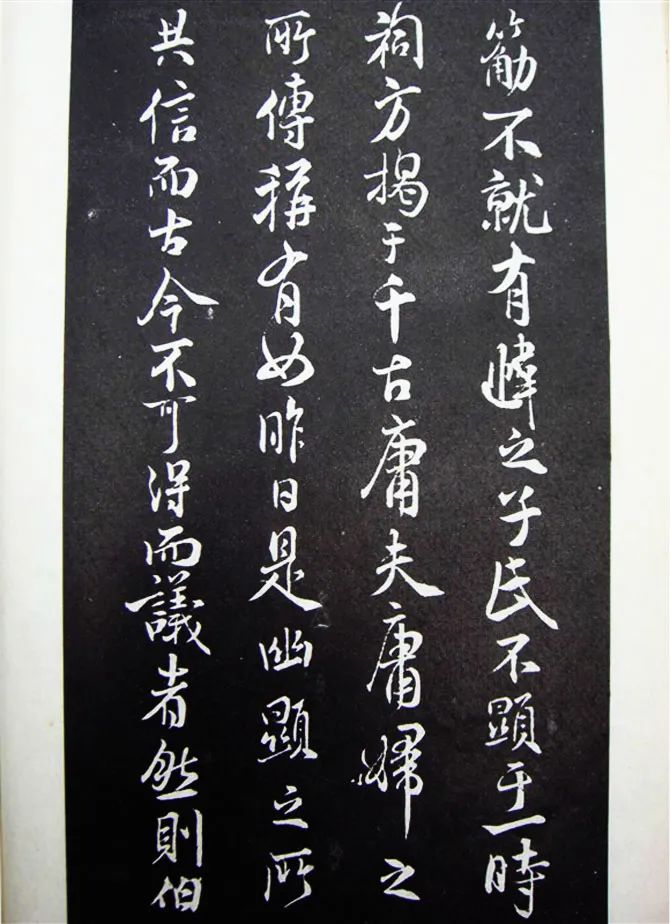 筋不就有之字氏不顯于一時
祠方揭于千古庸夫庸婦之
所傳稱有如昨日是幽顯之所
共信而古今不可得而議者然則伯